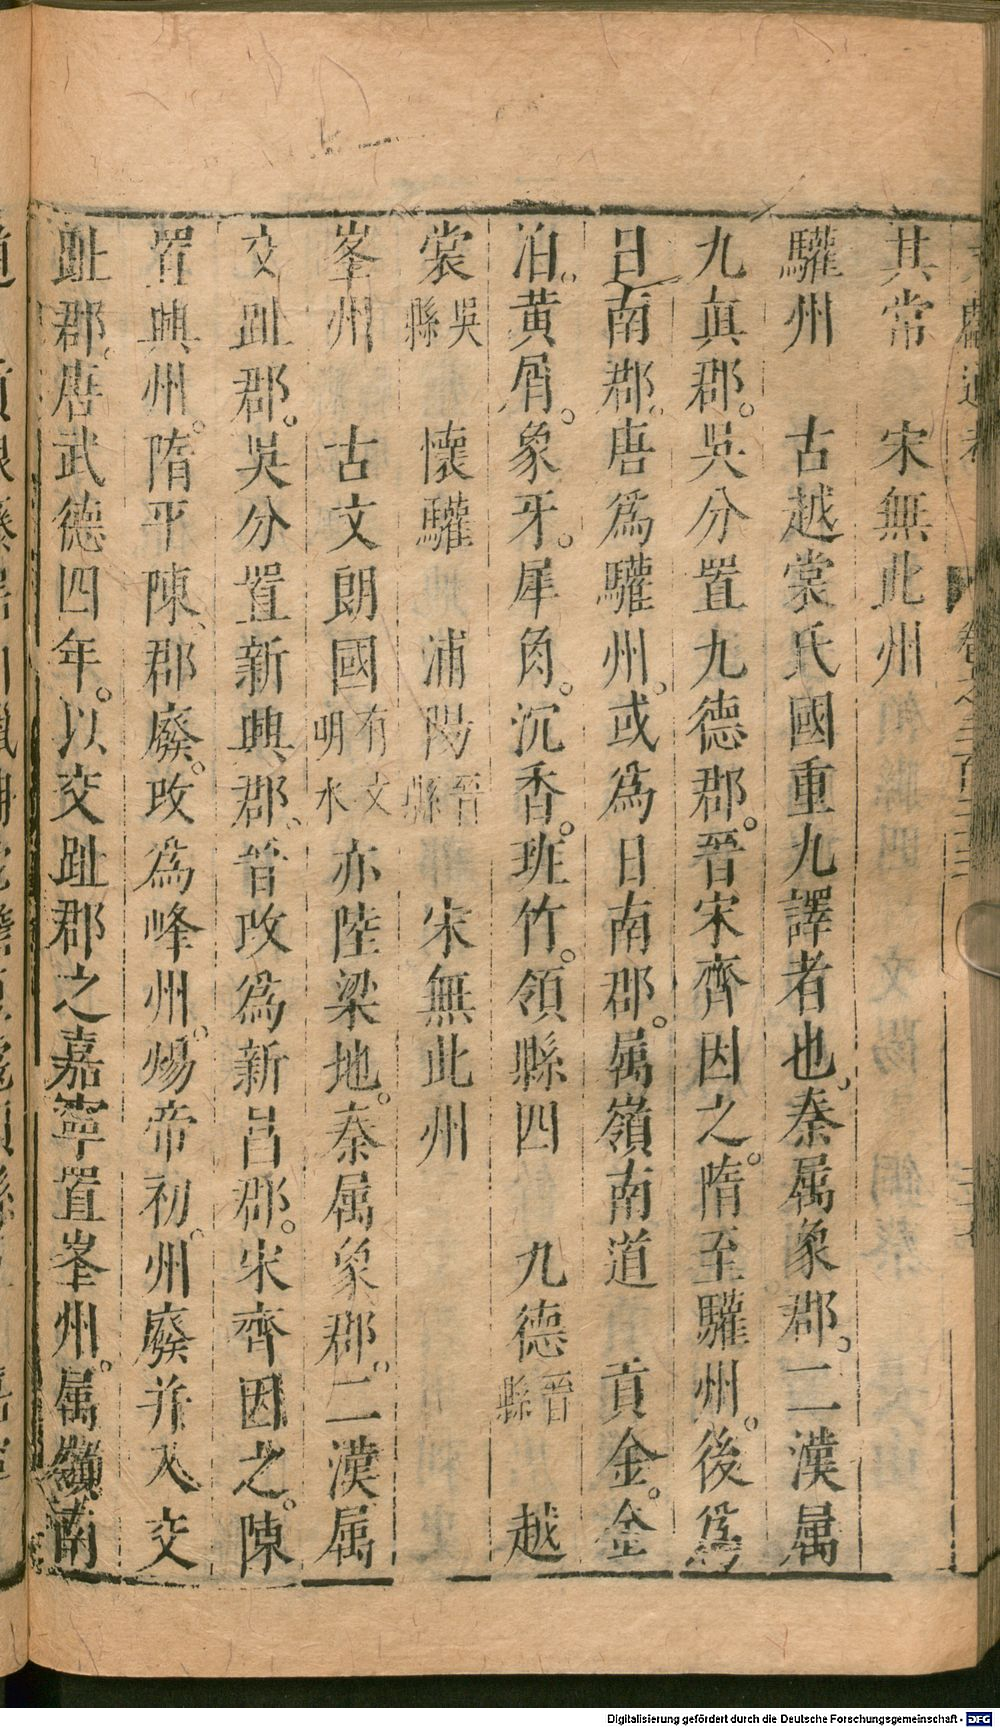 其常　宋無此州
驩州　古越裳氏國重九譯者也秦属象郡。二漢属
九眞郡。吳分置九德郡。晉宋齊因之。隋至驩州。後爲
日南郡。唐爲驩州。或爲日南郡。属嶺南道　貢金。金
泊。黄屑。象牙。犀角。沉香。班竹。領縣四　九德晉縣　越
裳吳縣　懷驩　浦陽晉縣　宋無此州
峯州　古文朗國有文明水亦陸梁地。秦属象郡。二漢属
交趾郡。吳分置新興郡、晉攺爲新昌郡。宋齊因之。陳
置興州。隋平陳、郡廢。攺爲峰州。煬帝初。州廢并入交
趾郡。唐武德四年。以交趾郡之嘉寧置峯州。属嶺南
Digitalisierung gefördert durch die Deutsche Forschungsgemeinschaft - DFG